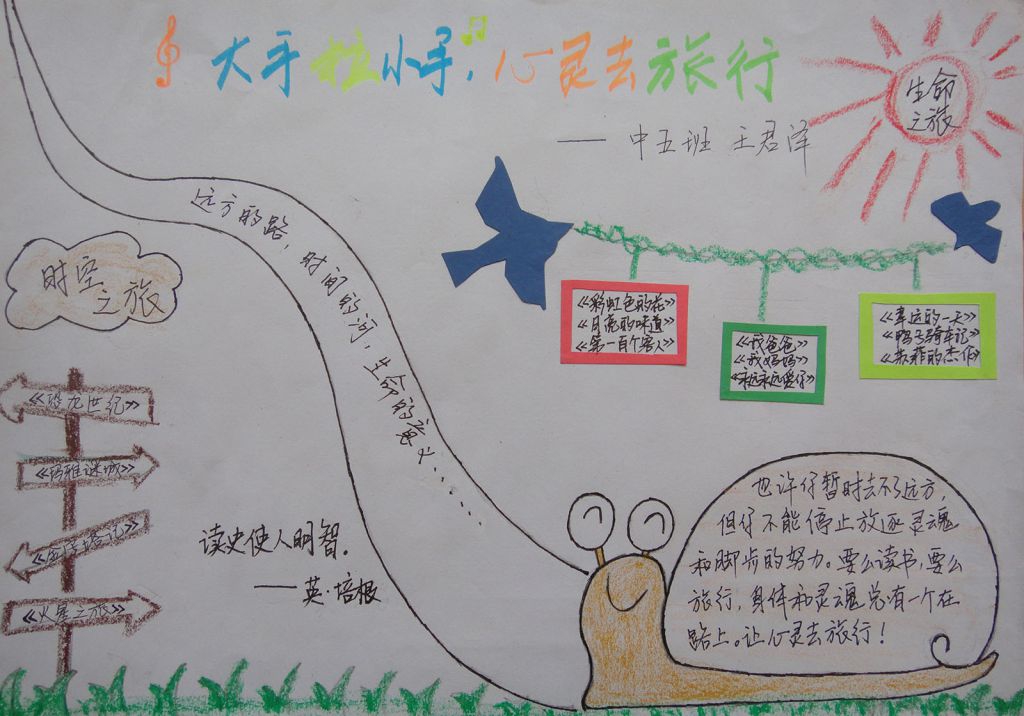 大手拉小手，心灵去旅行
——中五班 王君泽
生命
之旅
远方的路，时间的河，生命的意义......
时空
之旅
《彩虹色的花》
《月亮的味道》
《第一百个客人》
《我爸爸》
《我妈妈》
《永远永远爱你》
《幸运的一天》
《鸭子骑车记》
《苏菲的杰作》
《恐龙世纪》
《玛雅谜城》
《金字塔记》
《火星之旅》
读史使人明智.
——英·培根
也许你暂时去不了远方,
但你不能停止放逐灵魂
和脚步的努力。要么读书,要么
旅行,身体和灵魂总有一个在
路上。让心灵去旅行！